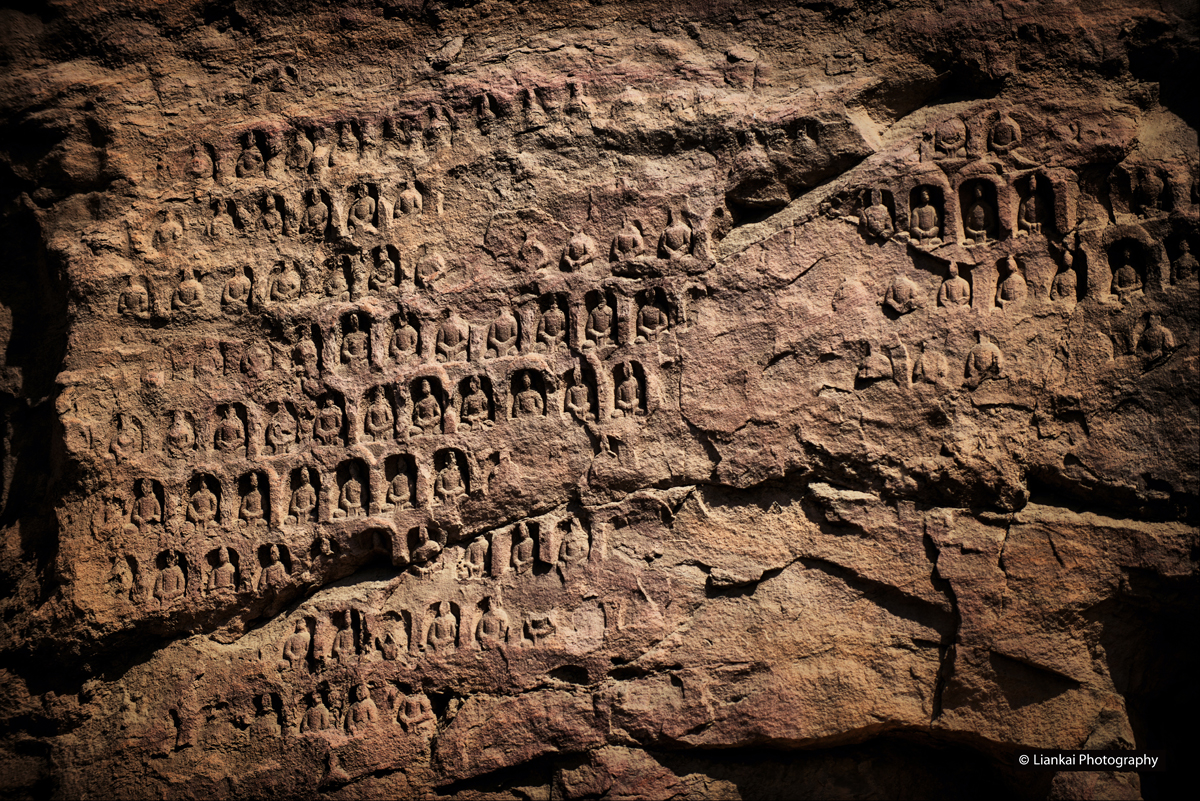 © Liankai Photography